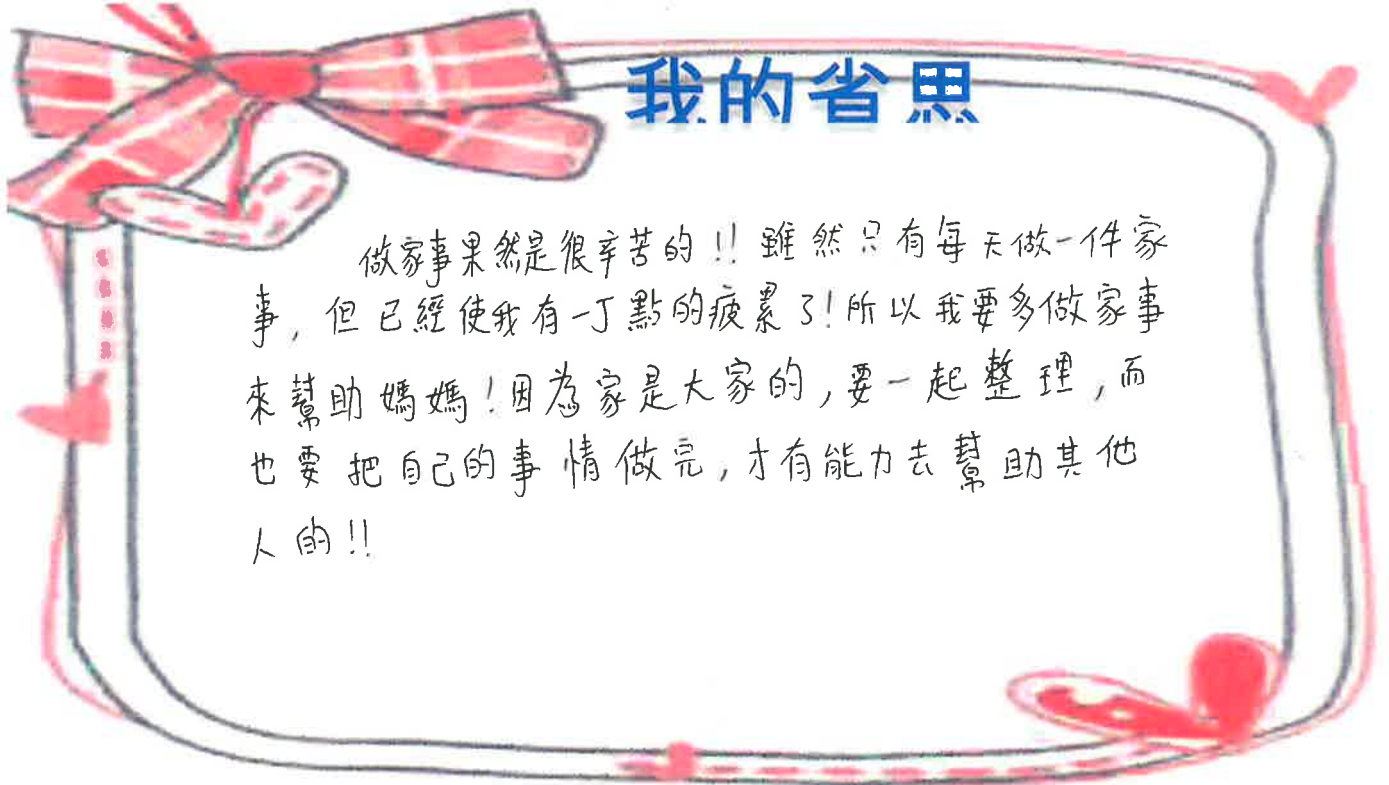 我的省思
做家事果然是很辛苦的!!雖然只有每天做一件家
事,但已經使我有一丁點的疲累了!所以我要多做家事
來幫助媽媽!因為家是大家的,要一起整理,而
也要把自己的事情做完,才有能力去幫助其他
人的!!